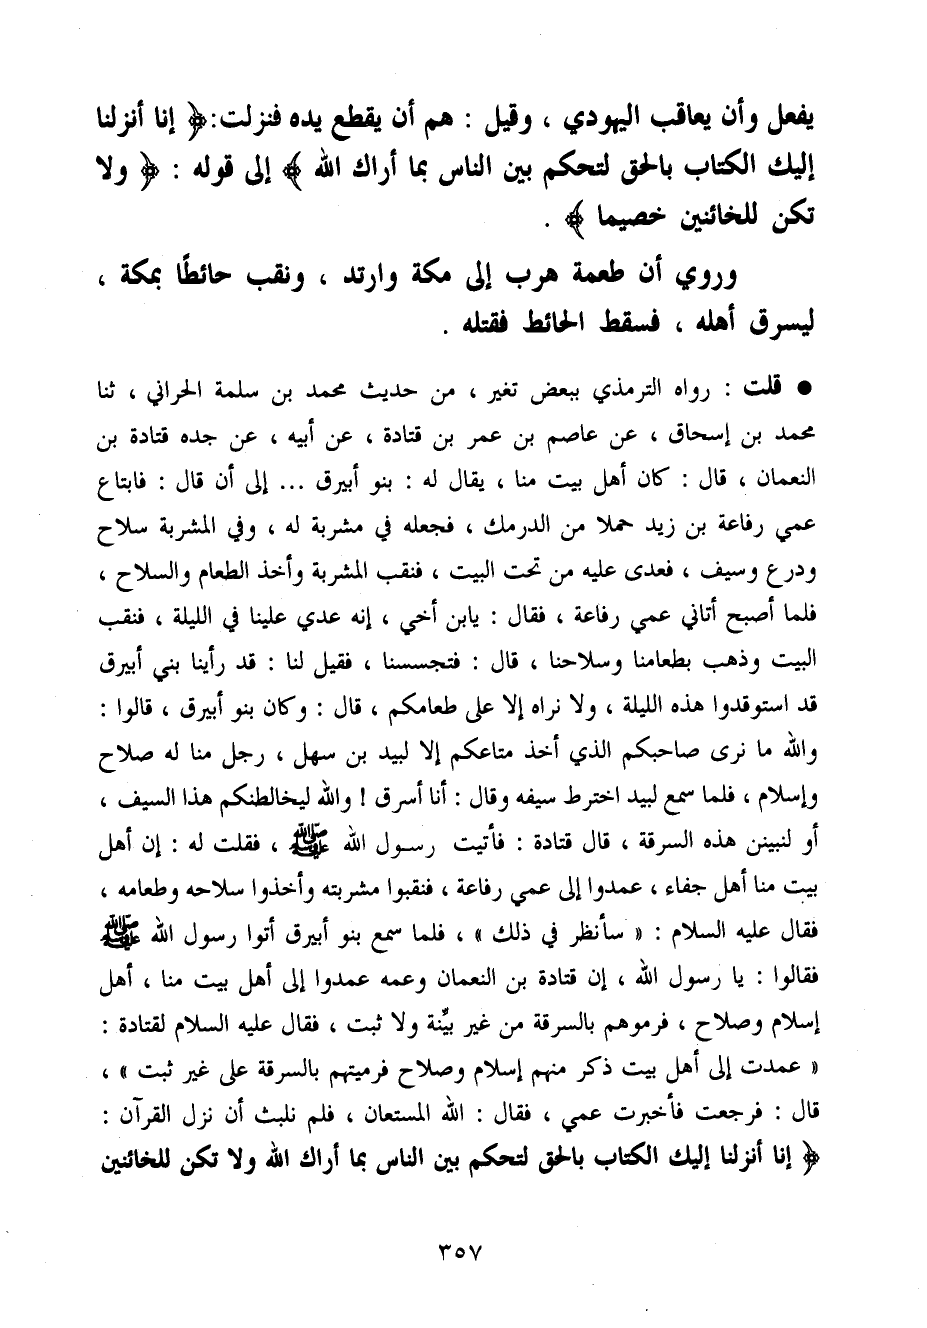 يفعل وأن يعاقب اليهودي ، وقيل : هم أن يقطع يده فنزلت:﴿ إنا أنزلنا
إليك الكتاب بالحق لتحكم بين الناس بما أراك الله ﴾ إلى قوله : ﴿ ولا
تكن للخائنين خصيما ﴾ .
وروي أن طعمة هرب إلى مكة وارتد ، ونقب حائطًا بمكة ،
ليسرق أهله ، فسقط الحائط فقتله .
● قلت : رواه الترمذي ببعض تغير ، من حديث محمد بن سلمة الحراني ، ثنا
محمد بن إسحاق ، عن عاصم بن عمر بن قتادة ، عن أبيه ، عن جده قتادة بن
النعمان ، قال : كان أهل بيت منا ، يقال له : بنو أبيرق ... إلى أن قال : فابتاع
عمي رفاعة بن زيد حملا من الدرمك ، فجعله في مشربة له ، وفي المشربة سلاح
ودرع وسيف ، فعدى عليه من تحت البيت ، فنقب المشربة وأخذ الطعام والسلاح ،
فلما أصبح أتاني عمي رفاعة ، فقال : يابن أخي ، إنه عدي علينا في الليلة ، فنقب
البيت وذهب بطعامنا وسلاحنا ، قال : فتجسسنا ، فقيل لنا : قد رأينا بني أبيرق
قد استوقدوا هذه الليلة ، ولا نراه إلا على طعامكم ، قال : وكان بنو أبيرق ، قالوا :
والله ما نرى صاحبكم الذي أخذ متاعكم إلا لبيد بن سهل ، رجل منا له صلاح
وإسلام ، فلما سمع لبيد اخترط سيفه وقال : أنا أسرق ! والله ليخالطنكم هذا السيف ،
أو لنبينن هذه السرقة ، قال قتادة : فأتيت رسول الله ﷺ ، فقلت له : إن أهل
بيت منا أهل جفاء ، عمدوا إلى عمي رفاعة ، فنقبوا مشربته وأخذوا سلاحه وطعامه ،
فقال عليه السلام : « سأنظر في ذلك » ، فلما سمع بنو أبيرق أتوا رسول الله ﷺ
فقالوا : يا رسول الله ، إن قتادة بن النعمان وعمه عمدوا إلى أهل بيت منا ، أهل
إسلام وصلاح ، فرموهم بالسرقة من غير بيِّنة ولا ثبت ، فقال عليه السلام لقتادة :
« عمدت إلى أهل بيت ذكر منهم إسلام وصلاح فرميتهم بالسرقة على غير ثبت » ،
قال : فرجعت فأخبرت عمي ، فقال : الله المستعان ، فلم نلبث أن نزل القرآن :
﴿ إنا أنزلنا إليك الكتاب بالحق لتحكم بين الناس بما أراك الله ولا تكن للخائنين
٣٥٧